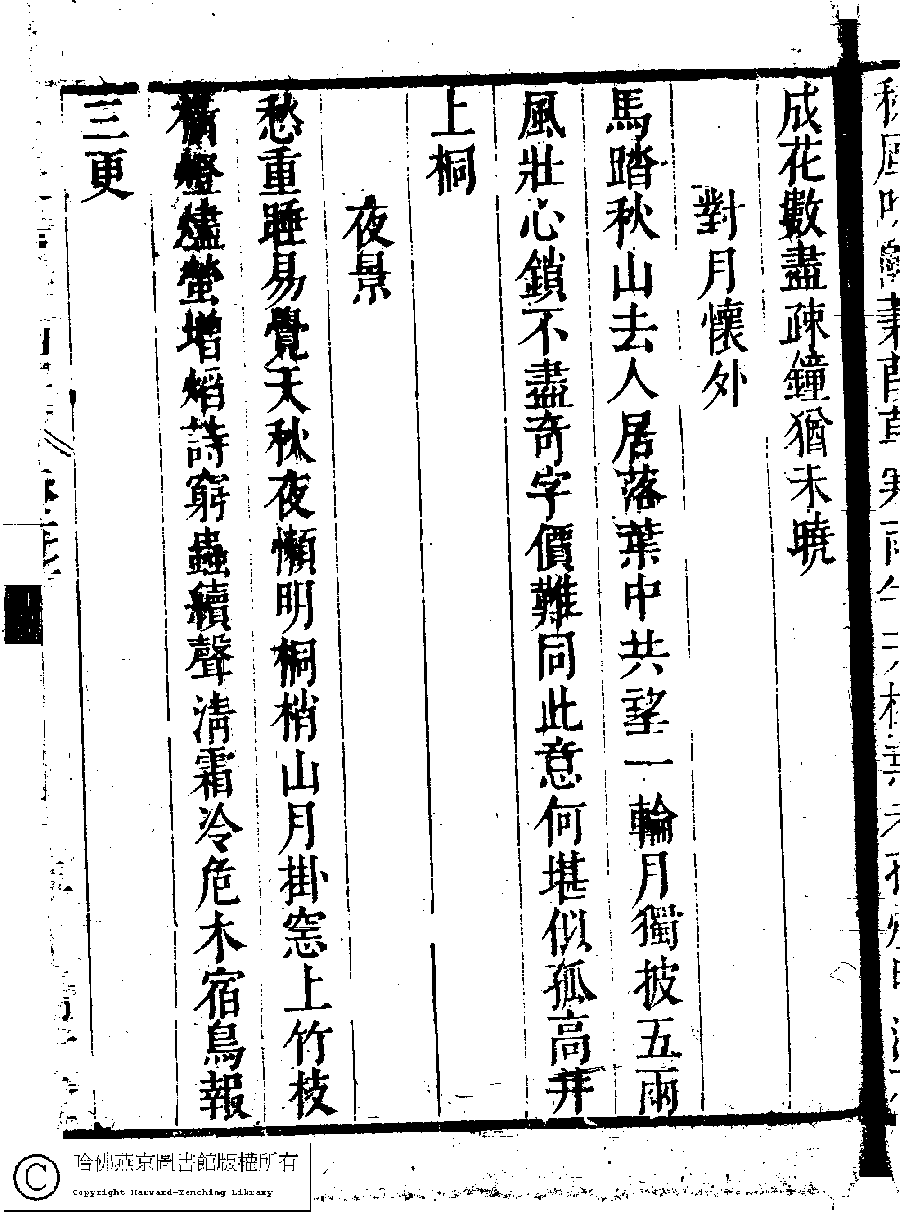 成花數盡疎鐘猶未曉
對月懷外
馬踏秋山去人居落葉中共望一輪月獨披五兩
風壯心鎖不盡奇字價難同此意何堪似孤高井
上桐
夜景
愁重睡易覺天秋夜懶明桐梢山月掛窓上竹枝
橫燈燼螢增焰詩窮蟲續聲清霜冷危木宿鳥報
三更
哈佛燕京圖書館版權所有
Copyright Harvard-Yenching Library